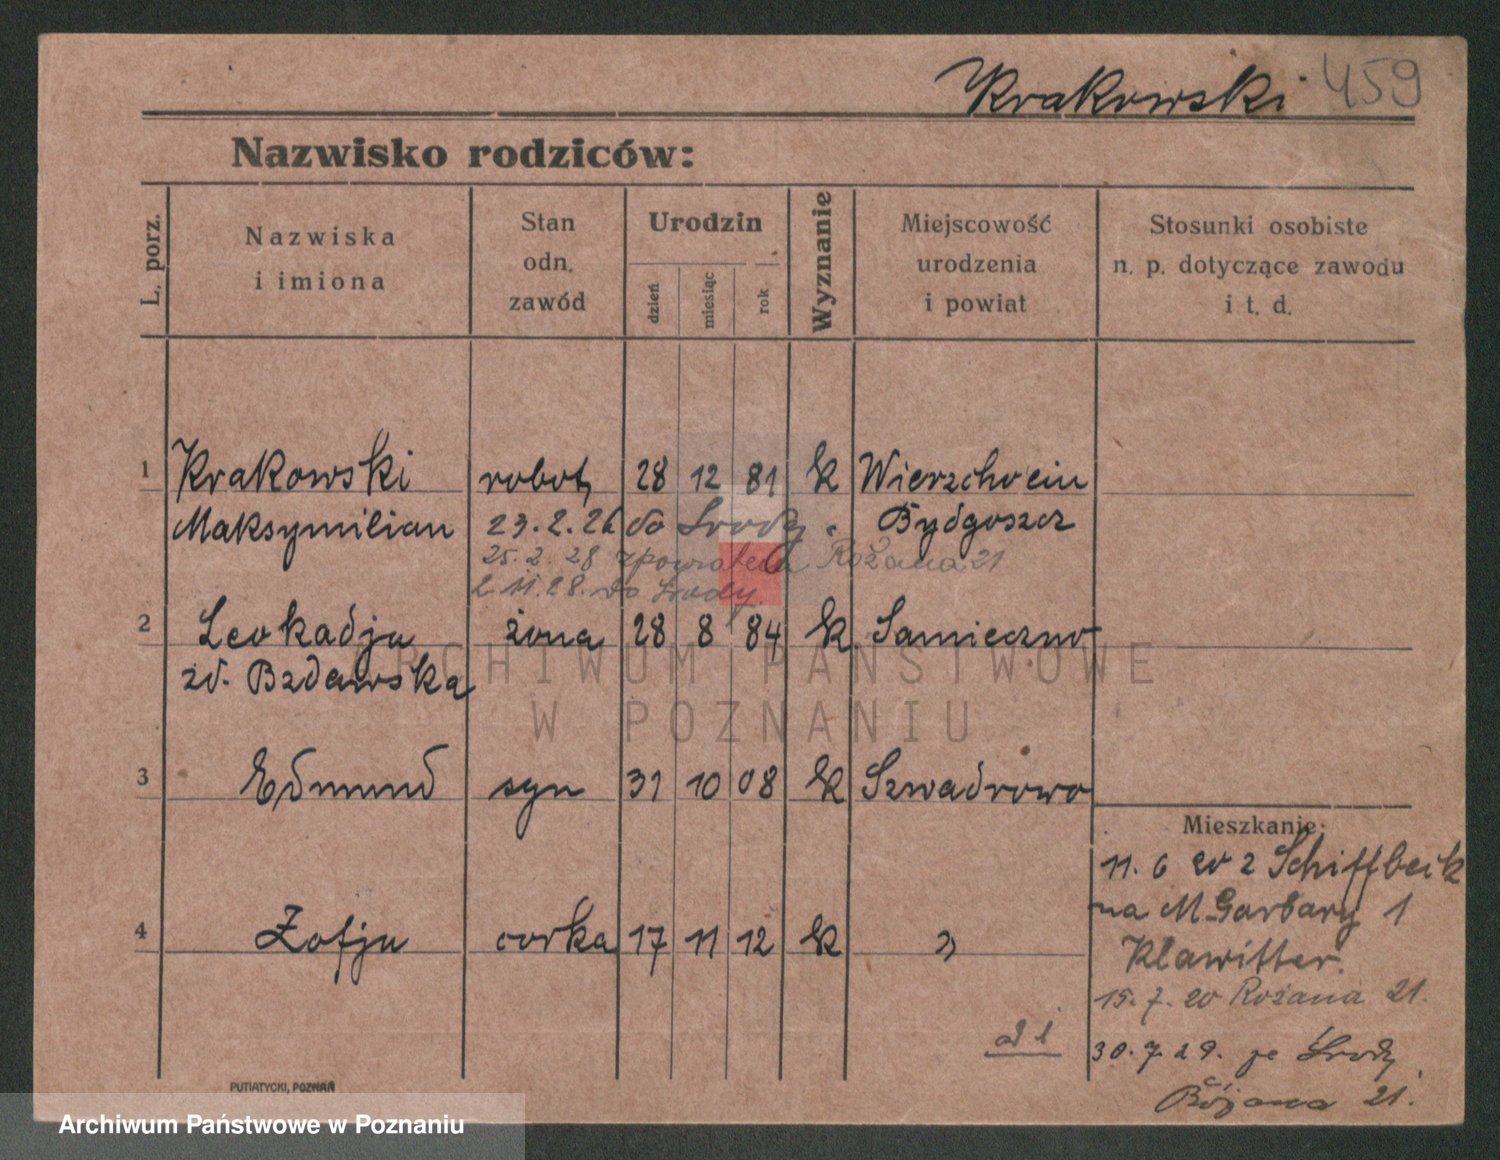 Krakowski 459
Nazwisko rodziców:
L. porz.
Nazwiska i imiona
Stan odn. zawód
Urodzin
dzień miesiąc rok
Wyznanie
Miejscowość urodzenia i powiat
Stosunki osobiste n. p. dotyczące zawodu i t. d.
1 Krakowski robot, 28 12 81 k Wierzchucin
Maksymilian 23.2.26 do Środy. Bydgoszcz
25.2.28 z powrotem Różana 21
2.11.28. do Środy.
2 Leokadja żona 28 8 84 k Samieczno
zd. Bzdawska
3 Edmund syn 31 10 08 k Szwadrowo
4 Zofja córka 17 11 12 k "
Mieszkanie:
11.6 20 z Schiffbeck
na M Garbary 1
Klawitter.
15.7.20 Różana 21.
30.7.29. ze Środy
Różana 21.
PUTIATYCKI, POZNAŃ
ARCHIWUM PAŃSTWOWE
W POZNANIU
Archiwum Państwowe w Poznaniu